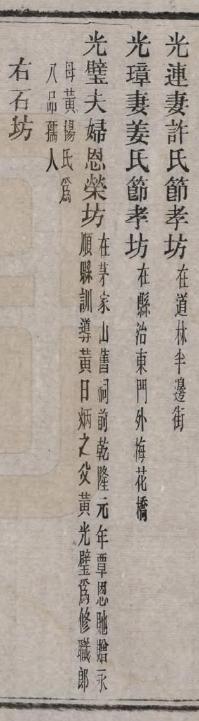 光連妻許氏節孝坊在道林半邊街
光璋妻姜氏節孝坊在縣治東門外梅花橋
光璧夫婦恩榮坊在茅家山舊祠前乾隆元年覃恩貤贈永
順縣訓導黃日炳之父黃光璧爲修職郎
母黃楊氏爲
八品孺人
右石坊